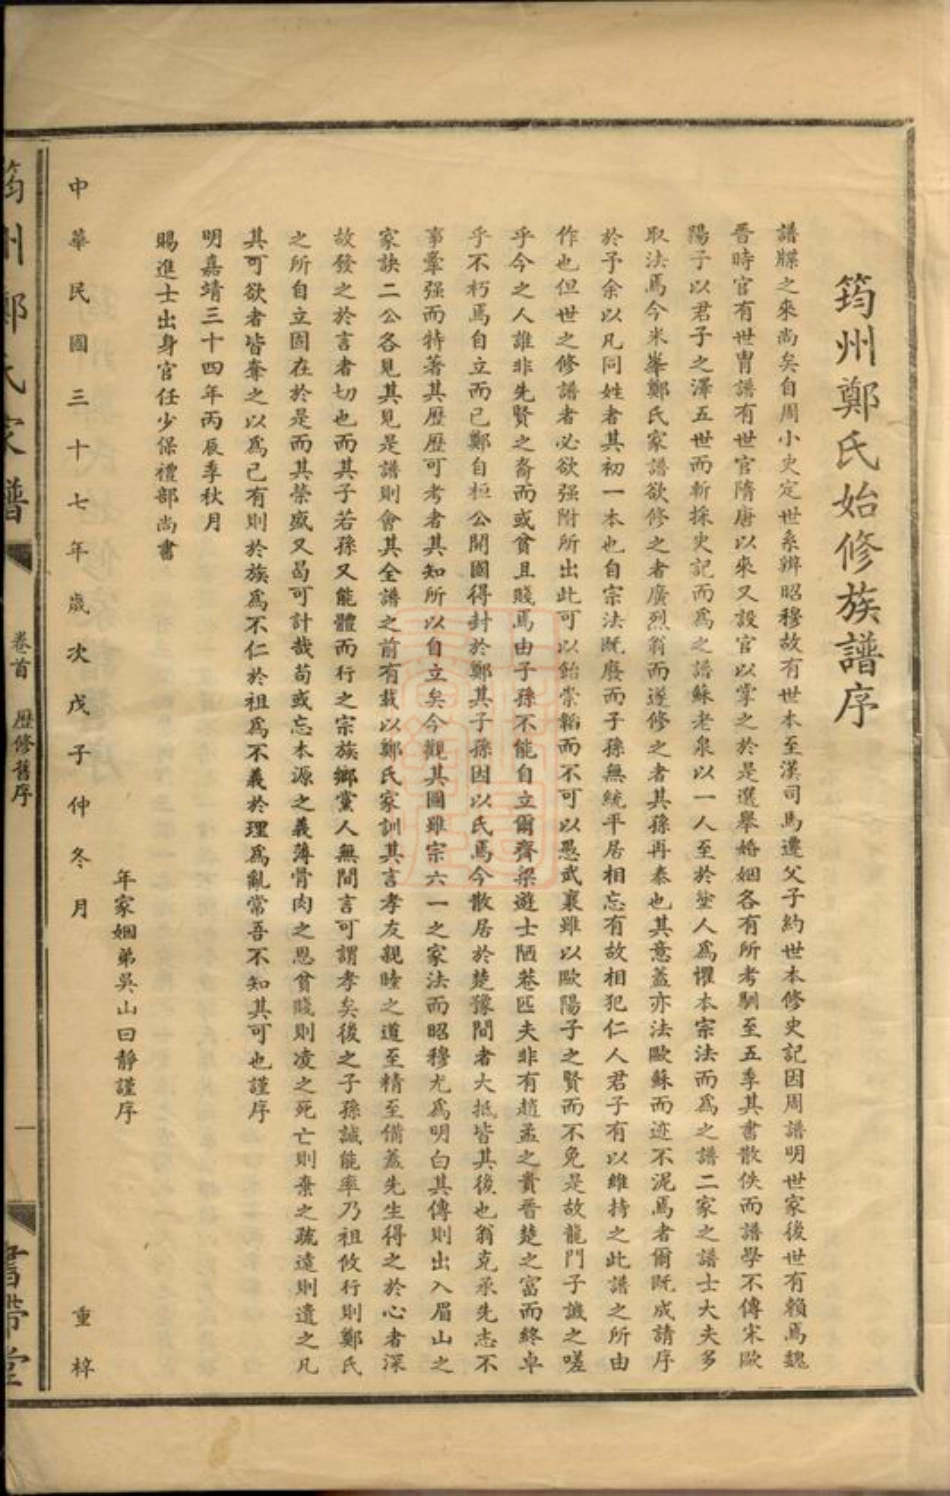 筠州鄭氏始修族譜序
譜牒之來尚矣自周小史定世系辨昭穆故有世本至漢司馬遷父子約世本修史記因周譜明世家後世有賴焉魏
晉時官有世冑譜有世官隋唐以來又設官以掌之於是選舉婚姻各有所考馴至五季其書散佚而譜學不傳宋歐
陽子以君子之澤五世而斬採史記而爲之譜蘇老泉以一人至於塗人爲懼本宗法而爲之譜二家之譜士大夫多
取法焉今米峯鄭氏家譜欲修之者廣烈翁而遂修之者其孫再泰也其意蓋亦法歐蘇而迹不泥焉者爾既成請序
於予余以凡同姓者其初一本也自宗法既廢而子孫無統平居相忘有故相犯仁人君子有以維持之此譜之所由
作也但世之修譜者必欲强附所出此可以飴崇韜而不可以愚武襄雖以歐陽子之賢而不免是故龍門子譏之嗟
乎今之人誰非先賢之裔而或貧且賤焉由子孫不能自立爾齊梁遊士陋巷匹夫非有趙孟之貴晉楚之富而終卓
乎不朽焉自立而已鄭自桓公開國得封於鄭其子孫因以氏焉今散居於楚豫間者大抵皆其後也翁克承先志不
事牽强而特著其歷歷可考者其知所以自立矣今觀其圖雖宗六一之家法而昭穆尤爲明白其傳則出入眉山之
家訣二公各見其見是譜則會其全譜之前有載以鄭氏家訓其言孝友親睦之道至精至備蓋先生得之於心者深
故發之於言者切也而其子若孫又能體而行之宗族鄉黨人無間言可謂孝矣後之子孫誠能率乃祖攸行則鄭氏
之所自立固在於是而其榮盛又曷可計哉苟或忘本源之義薄骨肉之恩貧賤則凌之死亡則棄之疏遠則遺之凡
其可欲者皆奪之以爲己有則於族爲不仁於祖爲不義於理爲亂常吾不知其可也謹序
明嘉靖三十四年丙辰季秋月
賜進士出身官任少保禮部尚書
年家姻弟吳山曰靜謹序
中華民國三十七年歲次戊子仲冬月 重梓
筠州鄭氏家譜 卷首 歷修舊序 一 書帶堂